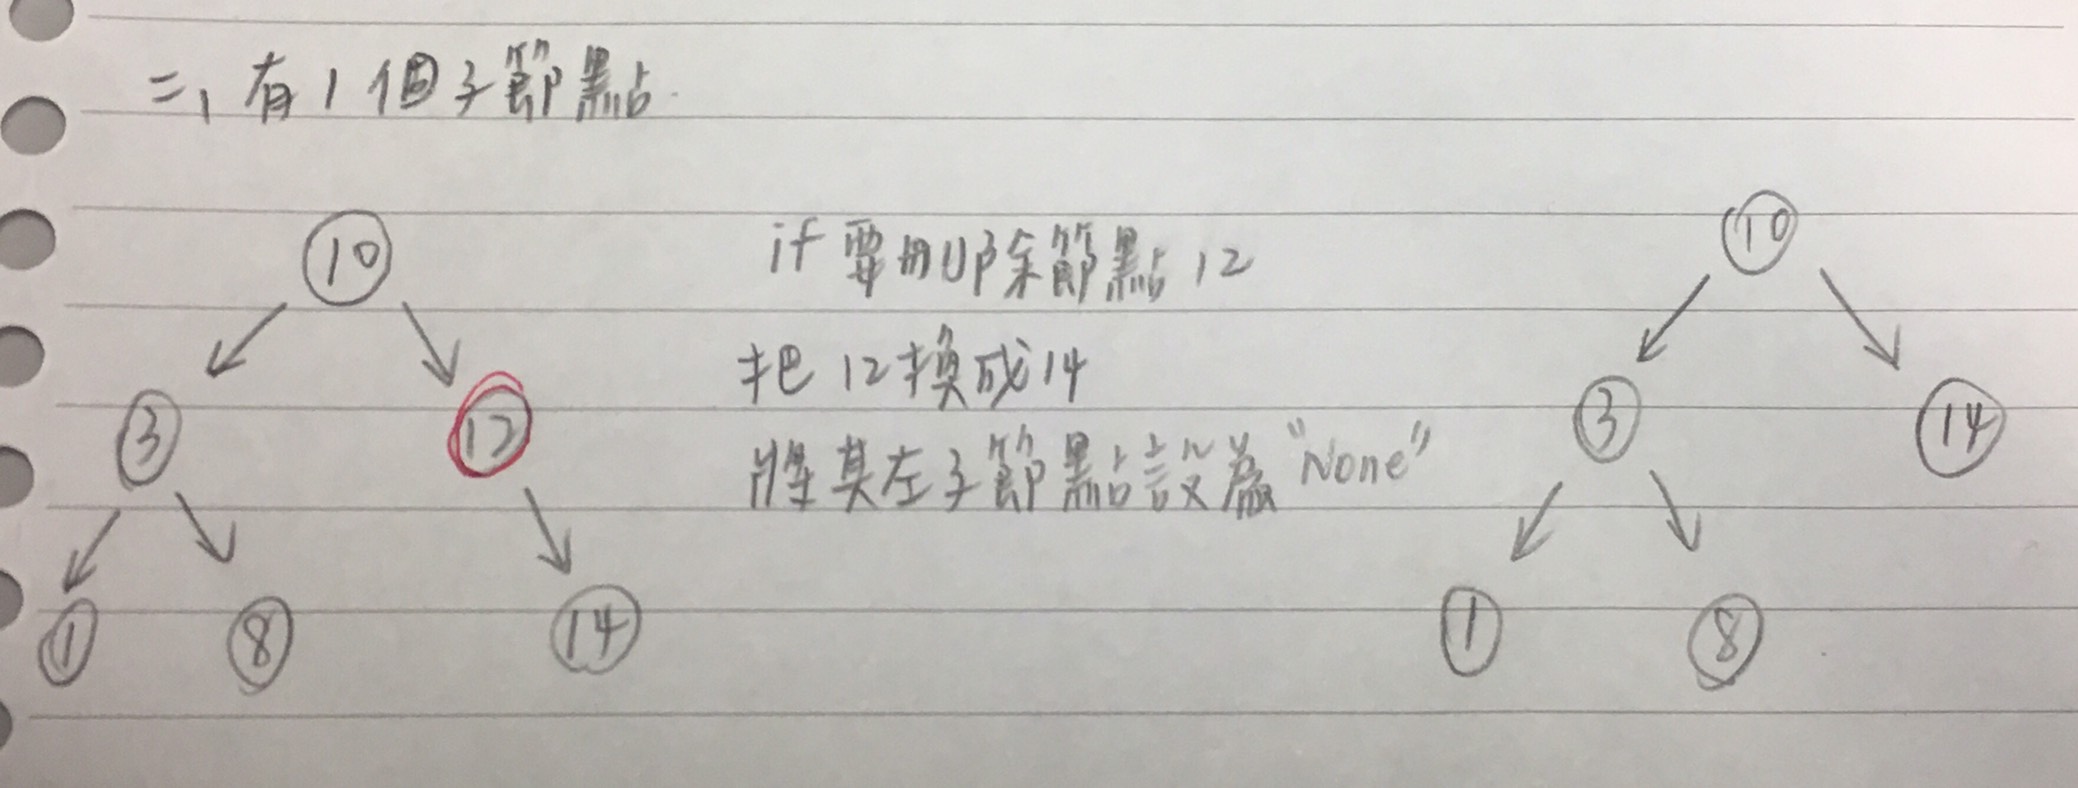 二、有1個子節點
10
3
12
1
8
14
if 要刪除節點12
把12換成14
將其左子節點設為"None"
10
3
14
1
8